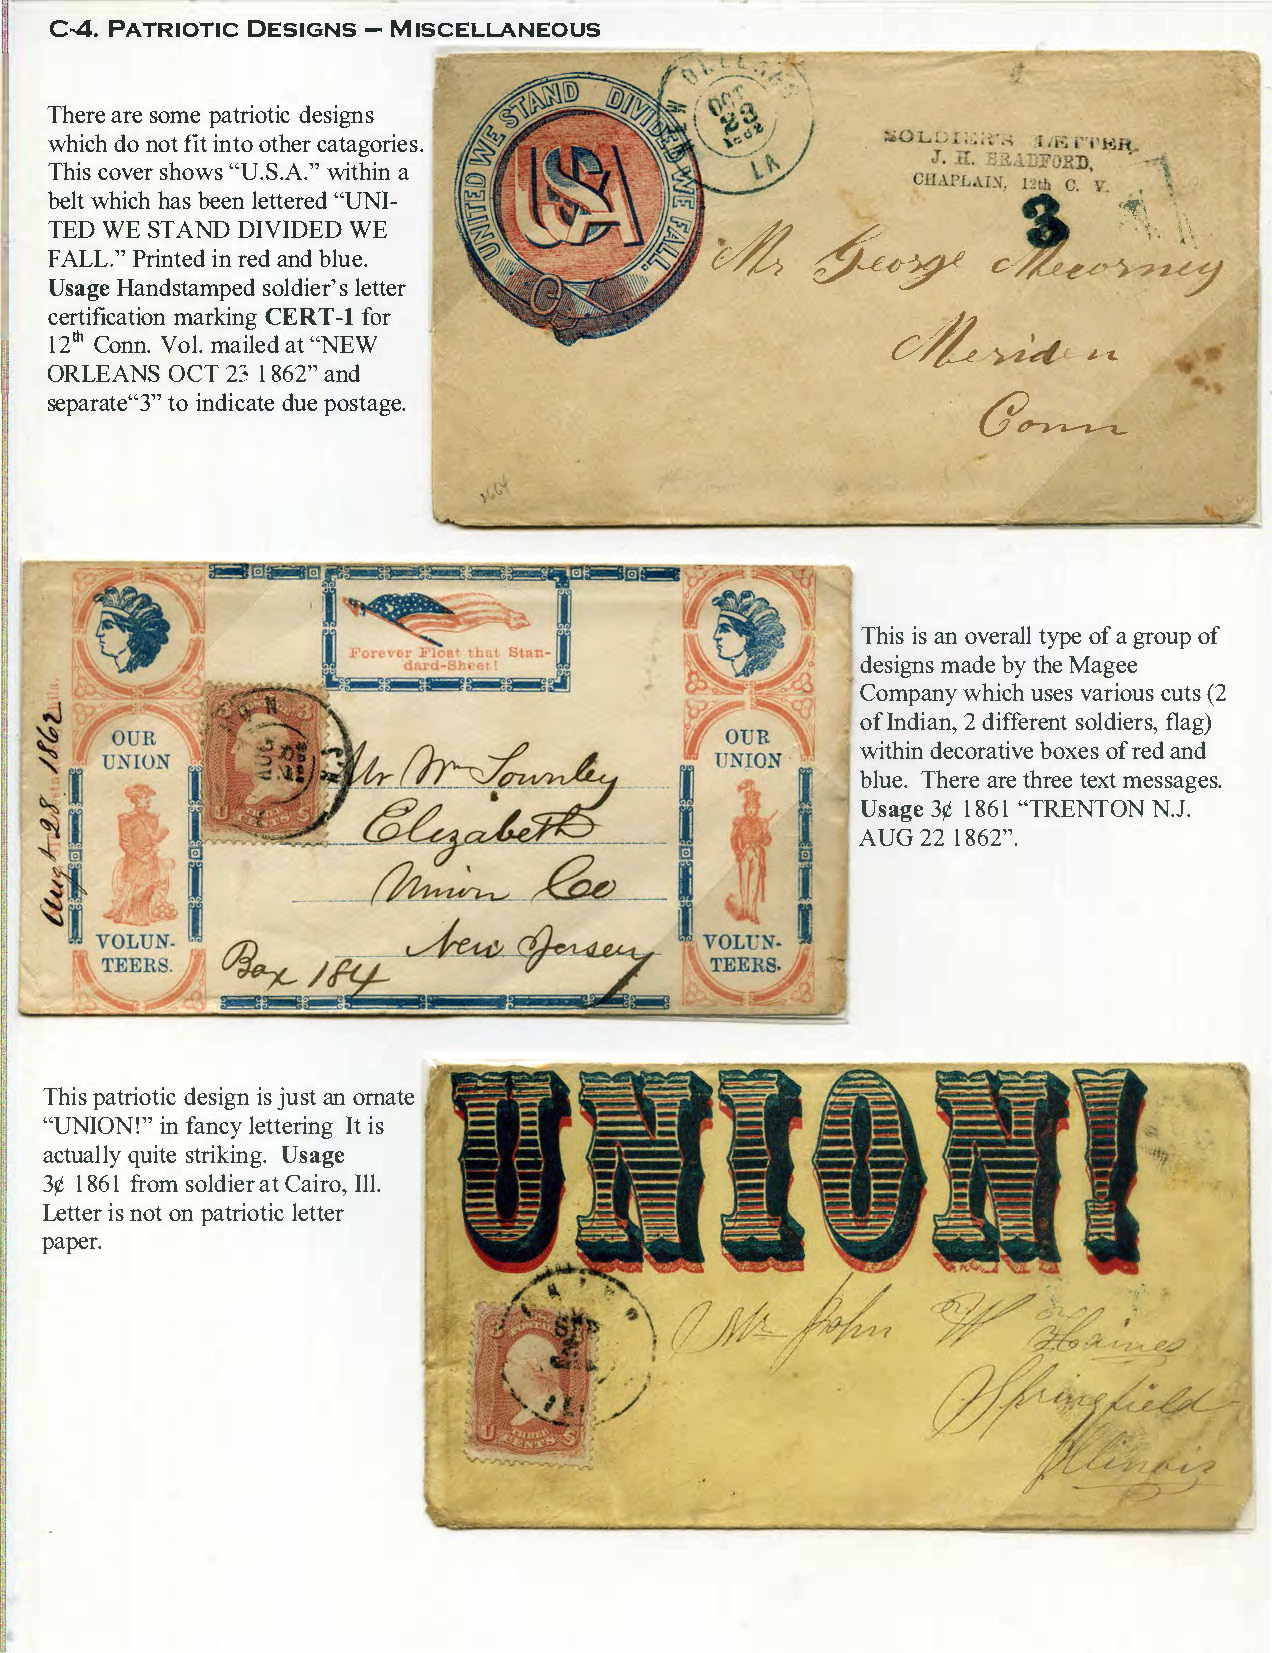 C-4. PATRIOTIC DESIGNS – MISCELLANEOUS
There are some patriotic designs
which do not fit into other catagories.
This cover shows “U.S.A.” within a
belt which has been lettered “UNI-
TED WE STAND DIVIDED WE
FALL.” Printed in red and blue.
Usage Handstamped soldier’s letter
certification marking CERT-1 for
12th Conn. Vol. mailed at “NEW
ORLEANS OCT 23 1862” and
separate“3” to indicate due postage.
UNITED WE STAND DIVIDED WE FALL.
USA
NEW ORLEANS
OCT
23
1862
LA
SOLDIER'S LETTER.
J. H. BRADFORD,
CHAPLAIN, 12th C. V.
3
Mr George
Meriden
Conn
3664
Forever Float that Stan-
dard-Sheet!
OUR
UNION
VOLUN-
TEERS.
Augt 28. 1862
3
U THREE CENTS S
AUG
22
N.J.
Mr Wm Townley
Elizabeth
Union Co
New Jersey
Box 184
OUR
UNION
VOLUN-
TEERS.
This is an overall type of a group of
designs made by the Magee
Company which uses various cuts (2
of Indian, 2 different soldiers, flag)
within decorative boxes of red and
blue.  There are three text messages.
Usage 3¢ 1861 “TRENTON N.J.
AUG 22 1862”.
This patriotic design is just an ornate
“UNION!” in fancy lettering  It is
actually quite striking.  Usage
3¢ 1861 from soldier at Cairo, Ill.
Letter is not on patriotic letter
paper.
UNION!
U THREE CENTS S
SEP
Mr John W Haines
Springfield
Illinois